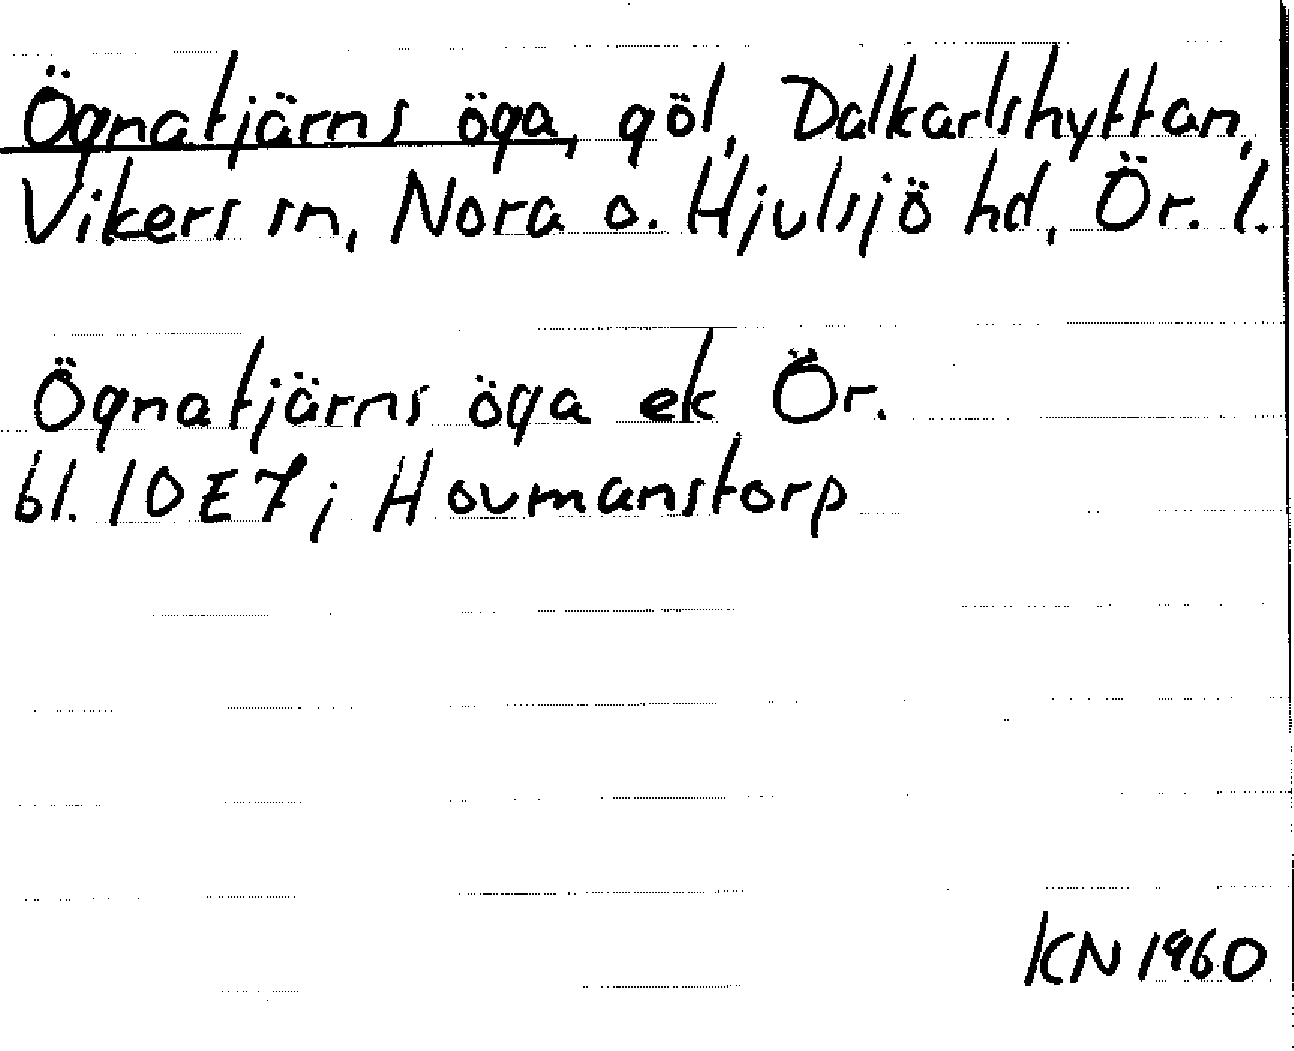 Ögnatjärns öga, göl, Dalkarlshyttan,
Vikers sn, Nora o. Hjulsjö hd, Ör. l.
Ögnatjärns öga ek Ör.
bl. 10E7; Hovmanstorp
KN 1960